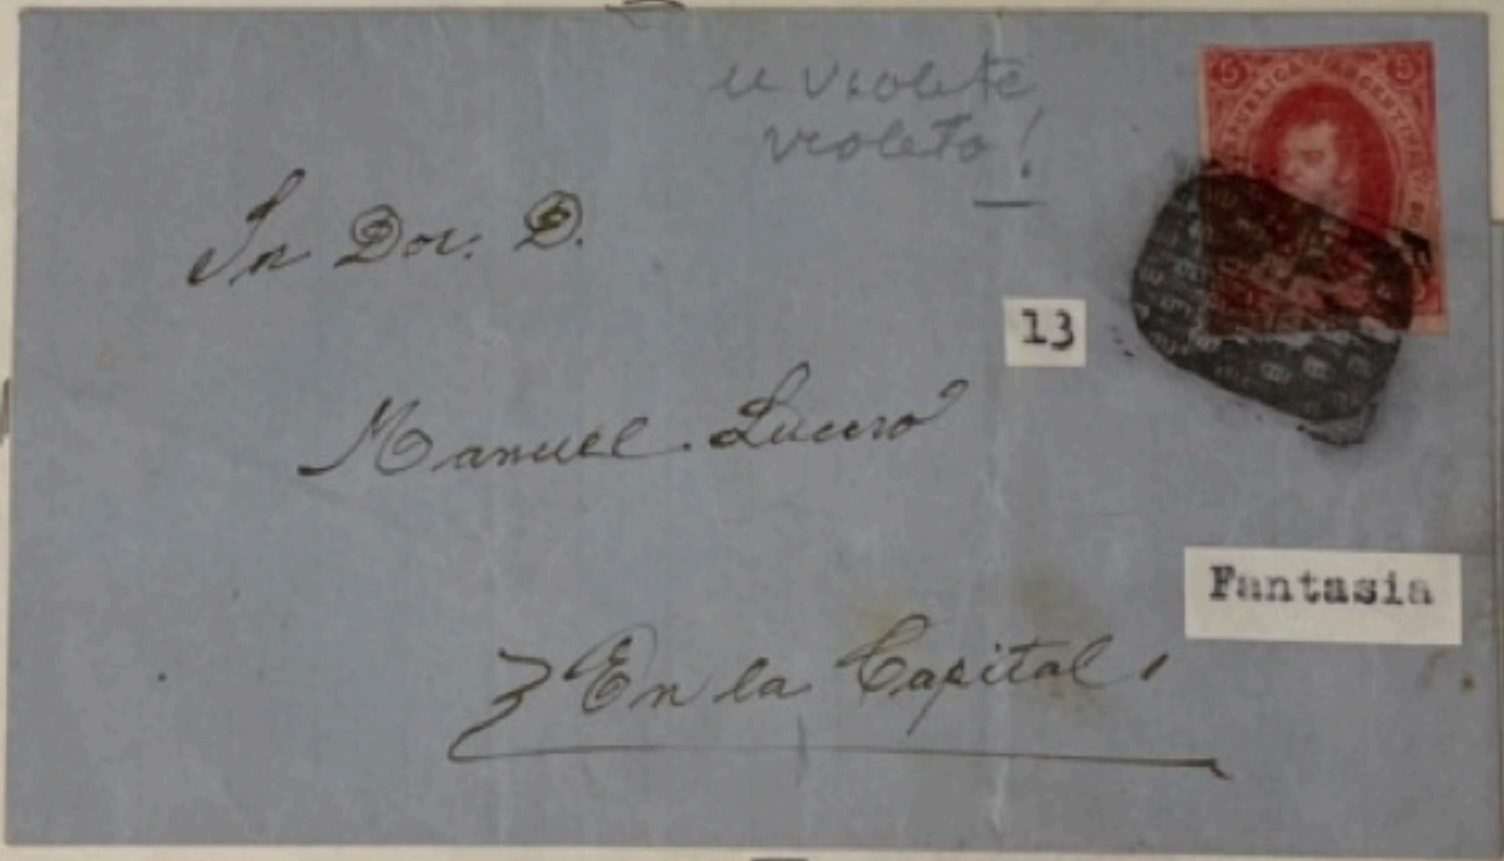 violeta!
5 REPUBLICA ARGENTINA 5
Sr Dor. D.
13
Manuel. Lucero
Fantasia
En la Capital.